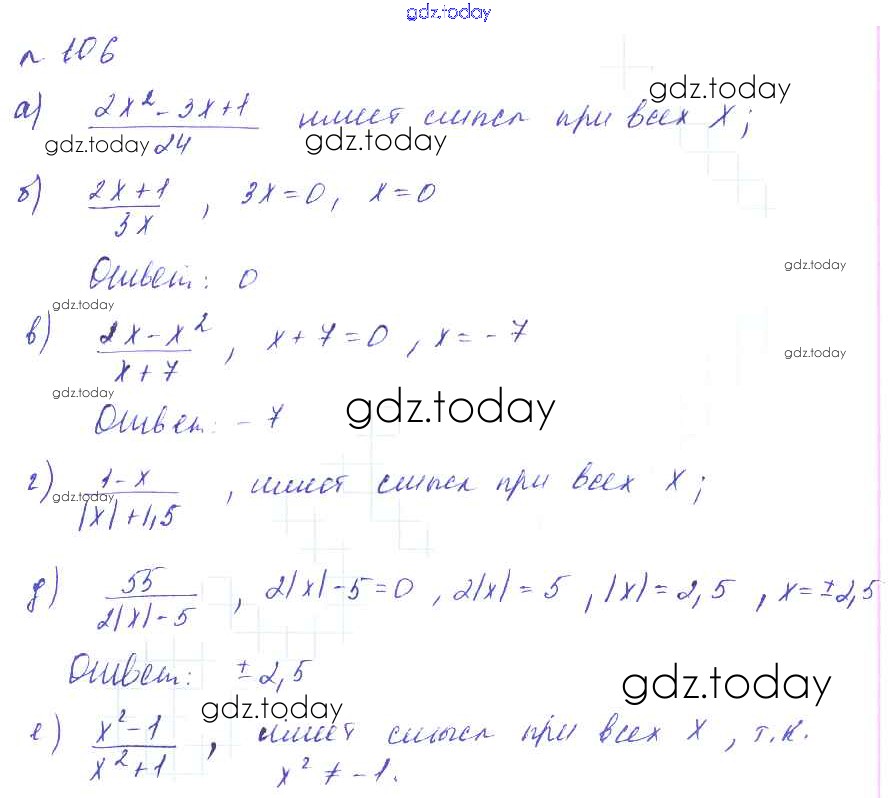 gdz.today
n 106
gdz.today
а) (2x² - 3x + 1)/24 имеет смысл при всех X;
gdz.today gdz.today
б) (2x + 1)/3x , 3x = 0, x = 0
gdz.today
Ответ: 0
gdz.today
в) (2x - x²)/(x + 7) , x + 7 = 0 , x = -7
gdz.today
gdz.today
Ответ: -7
gdz.today
г) (1 - x)/(|x| + 1,5) , имеет смысл при всех X;
gdz.today
д) 55/(2|x| - 5) , 2|x| - 5 = 0 , 2|x| = 5 , |x| = 2,5 , x = ±2,5
Ответ: ±2,5
gdz.today
gdz.today
е) (x² - 1)/(x² + 1) , имеет смысл при всех X , т.к.
x² ≠ -1.